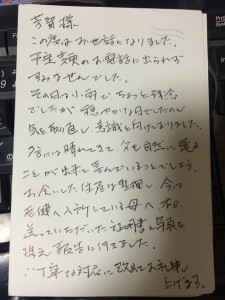 芳賀様
この度はお世話になりました。
不在気味のお電話に出られず
すみませんでした。
その日は小雨でちょっと残念
でしたが穏やかな日でしたので
気を取直し、意識を向けておりました。
には晴れてきて、父も自然に還る
ことが出来て喜んでいることでしょう。
お伝いした住居は整理し、今は
老健へ入所している母へ本日
送っていただいた証明書と写真を
携え報告に行きました。
丁寧な対応に改めてお礼申し
上げます。